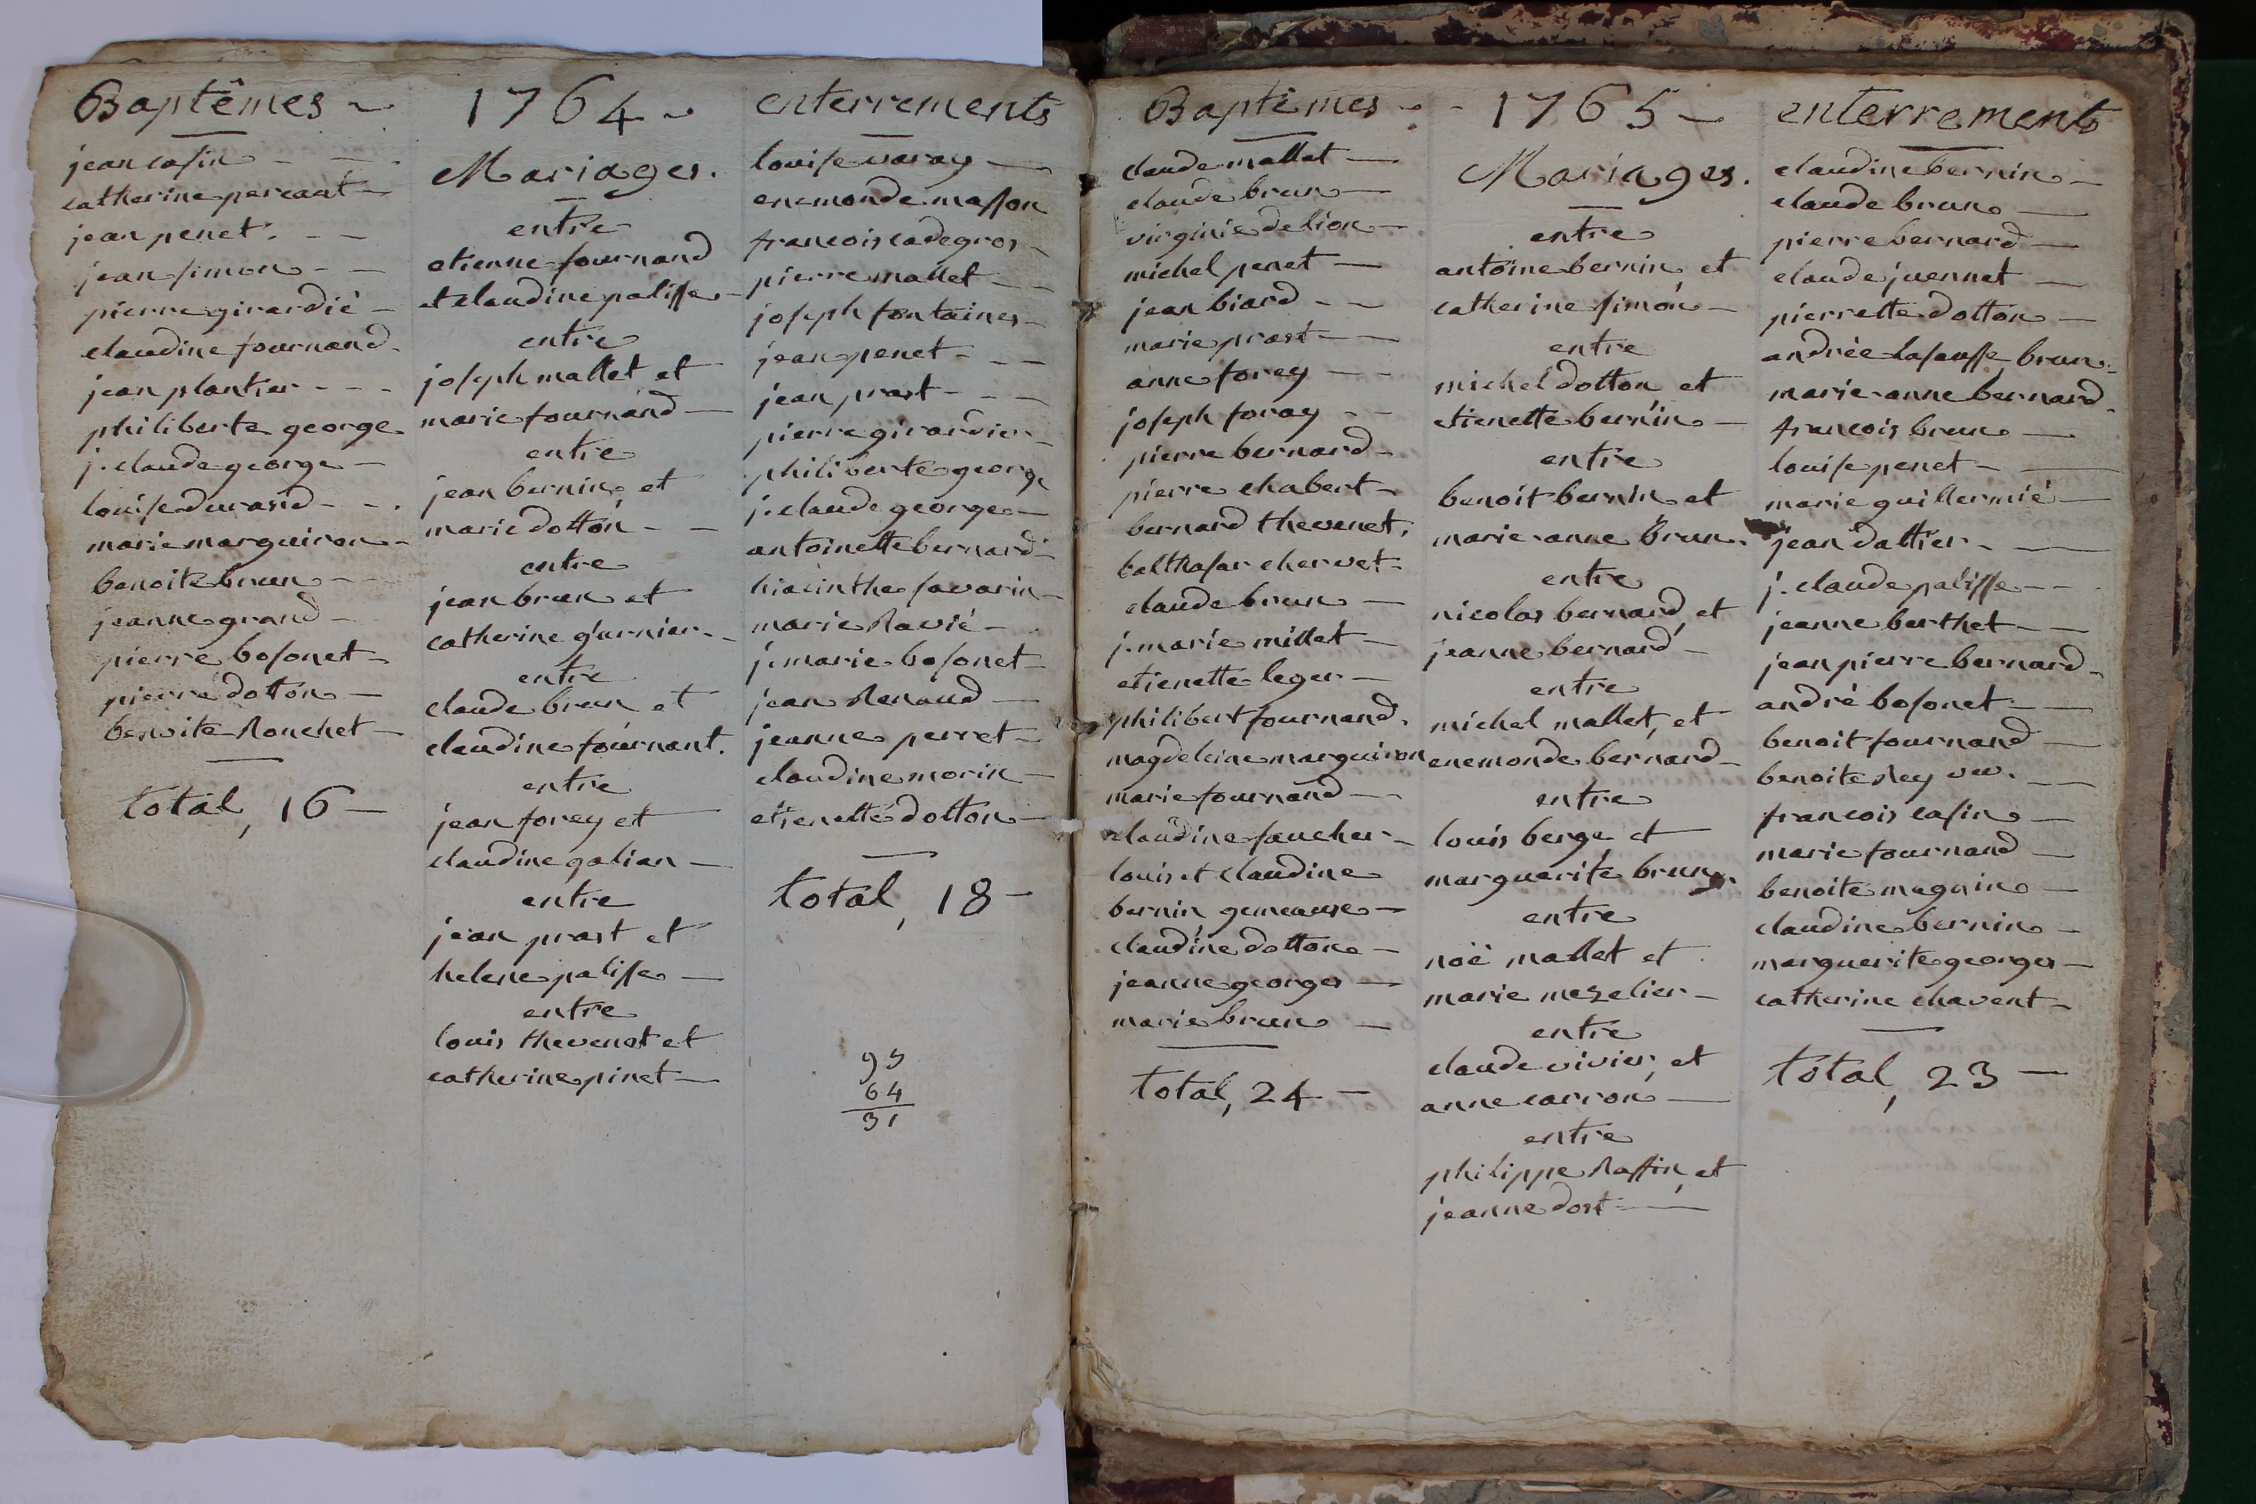 Baptêmes ~
jean casin - -
catherine percant -
jean penet. - -
jean simon - -
pierre girardié -
claudine fournand.
jean plantier - - -
philiberte george
j. claude george -
louise durand - - .
marie marguiron -
benoite brun - -
jeanne grand -
pierre bosonet -
pierre dotton -
benoite Ronchet -
total, 16 -
1764 ~
Mariages.
entre
etienne fournand
et claudine palisse -
entre
joseph mallet et
marie fournand -
entre
jean bernin et
marie dotton - -
entre
jean brun et
catherine gurnier. -
entre
claude brun et
claudine fournant.
entre
jean forey et
claudine galian -
entre
jean prast et
helene palisse -
entre
louis thevenot et
catherine pinet -
enterrements
louise varay -
enemonde masson
francois cadegros -
pierre mallet - -
joseph fontaines -
jean penet - - -
jean prast - - -
pierre girardier -
philiberte george
j. claude george -
antoinette bernard -
hiacinthe savarin -
marie Ravié -
j. marie bosonet -
jean Renaud -
jeanne perret -
claudine morin -
etienette dotton -
total, 18 -
95
64
31
Baptêmes ~
claude mallet -
claude brun -
virginie delion -
michel penet -
jean biard - -
marie prast - -
anne forey - -
joseph foray - -
pierre bernard -
pierre chabert -
bernard thevenet.
balthasar chervet -
claude brun -
j. marie millet -
etienette leger -
philibert fournand.
magdeleine marguiron
marie fournand -
claudine faucher -
louis et claudine
bernin gemeause -
claudine dotton -
jeanne georges -
marie brun -
total, 24 -
- 1765 -
Mariages.
entre
antoine bernin et
catherine simon -
entre
michel dotton et
etienette bernin -
entre
benoit bernin et
marie-anne Brun.
entre
nicolas bernard, et
jeanne bernard -
entre
michel mallet, et
enemonde bernard -
entre
louis berge et
marguerite brun
entre
nöë mallet et
marie mezelier -
entre
claude vivier, et
anne carron -
entre
philippe Raffin, et
jeanne dost -
enterrements
claudine bernin -
claude brun -
pierre bernard -
claude juennet -
pierrette dotton -
andrée lasausse brun.
marie-anne bernard.
francois brun -
louise penet -
marie guillermié -
jean dattier -
j. claude palisse -
jeanne berthet -
jean pierre bernard -
andré bosonet -
benoit fournand -
benoite Rey veu. -
francois casin -
marie fournand -
benoite magnin -
claudine bernin -
marguerite georges -
catherine chavent -
total, 23 -